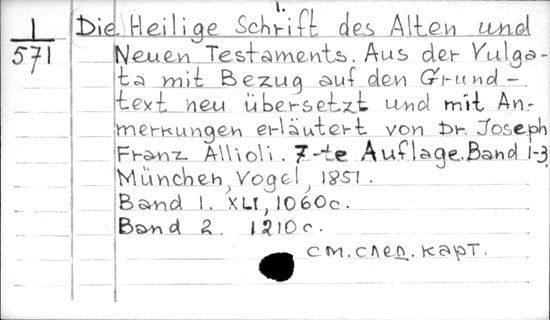 1.
1/571 Die Heilige Schrift des Alten und
Neuen Testaments. Aus der Vulga-
ta mit Bezug auf den Grund-
text neu übersetzt und mit An-
merkungen erläutert von Dr. Joseph
Franz Allioli. 7-te Auflage. Band 1-3
München, Vogel, 1851.
Band 1. XLI, 1060 c.
Band 2. 1210 c.
см. след. карт.